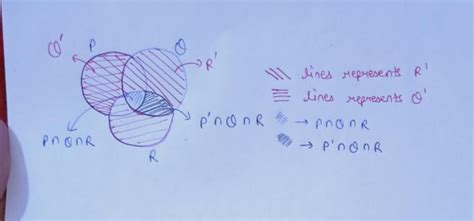 Q' P Q
R'
lines represents R'
lines represents Q'
→ P∩Q∩R
P'∩Q∩R
P∩Q∩R
→ P'∩Q∩R
R